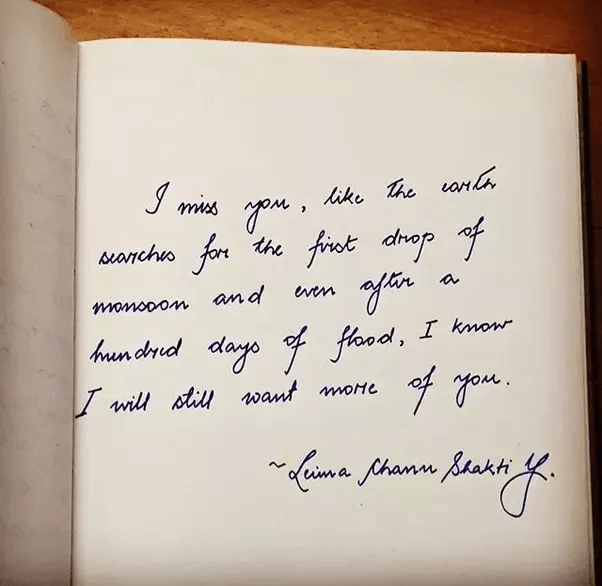 I miss you, like the earth
searches for the first drop of
monsoon and even after a
hundred days of flood, I know
I will still want more of you.
~Leima Chanu Shakti Y.